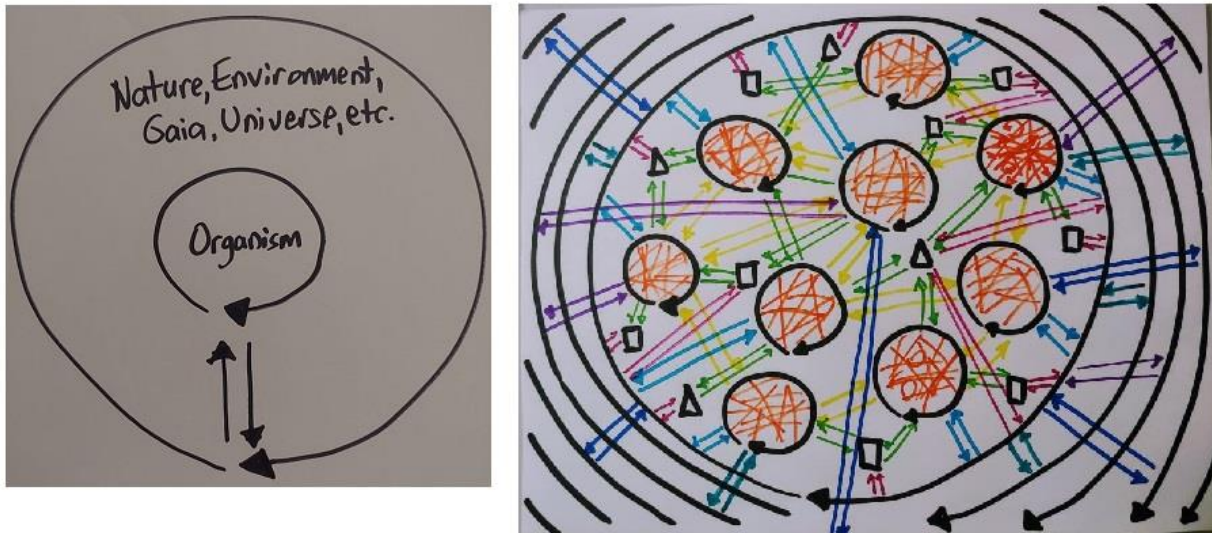 Nature, Environment,
Gaia, Universe, etc.
Organism